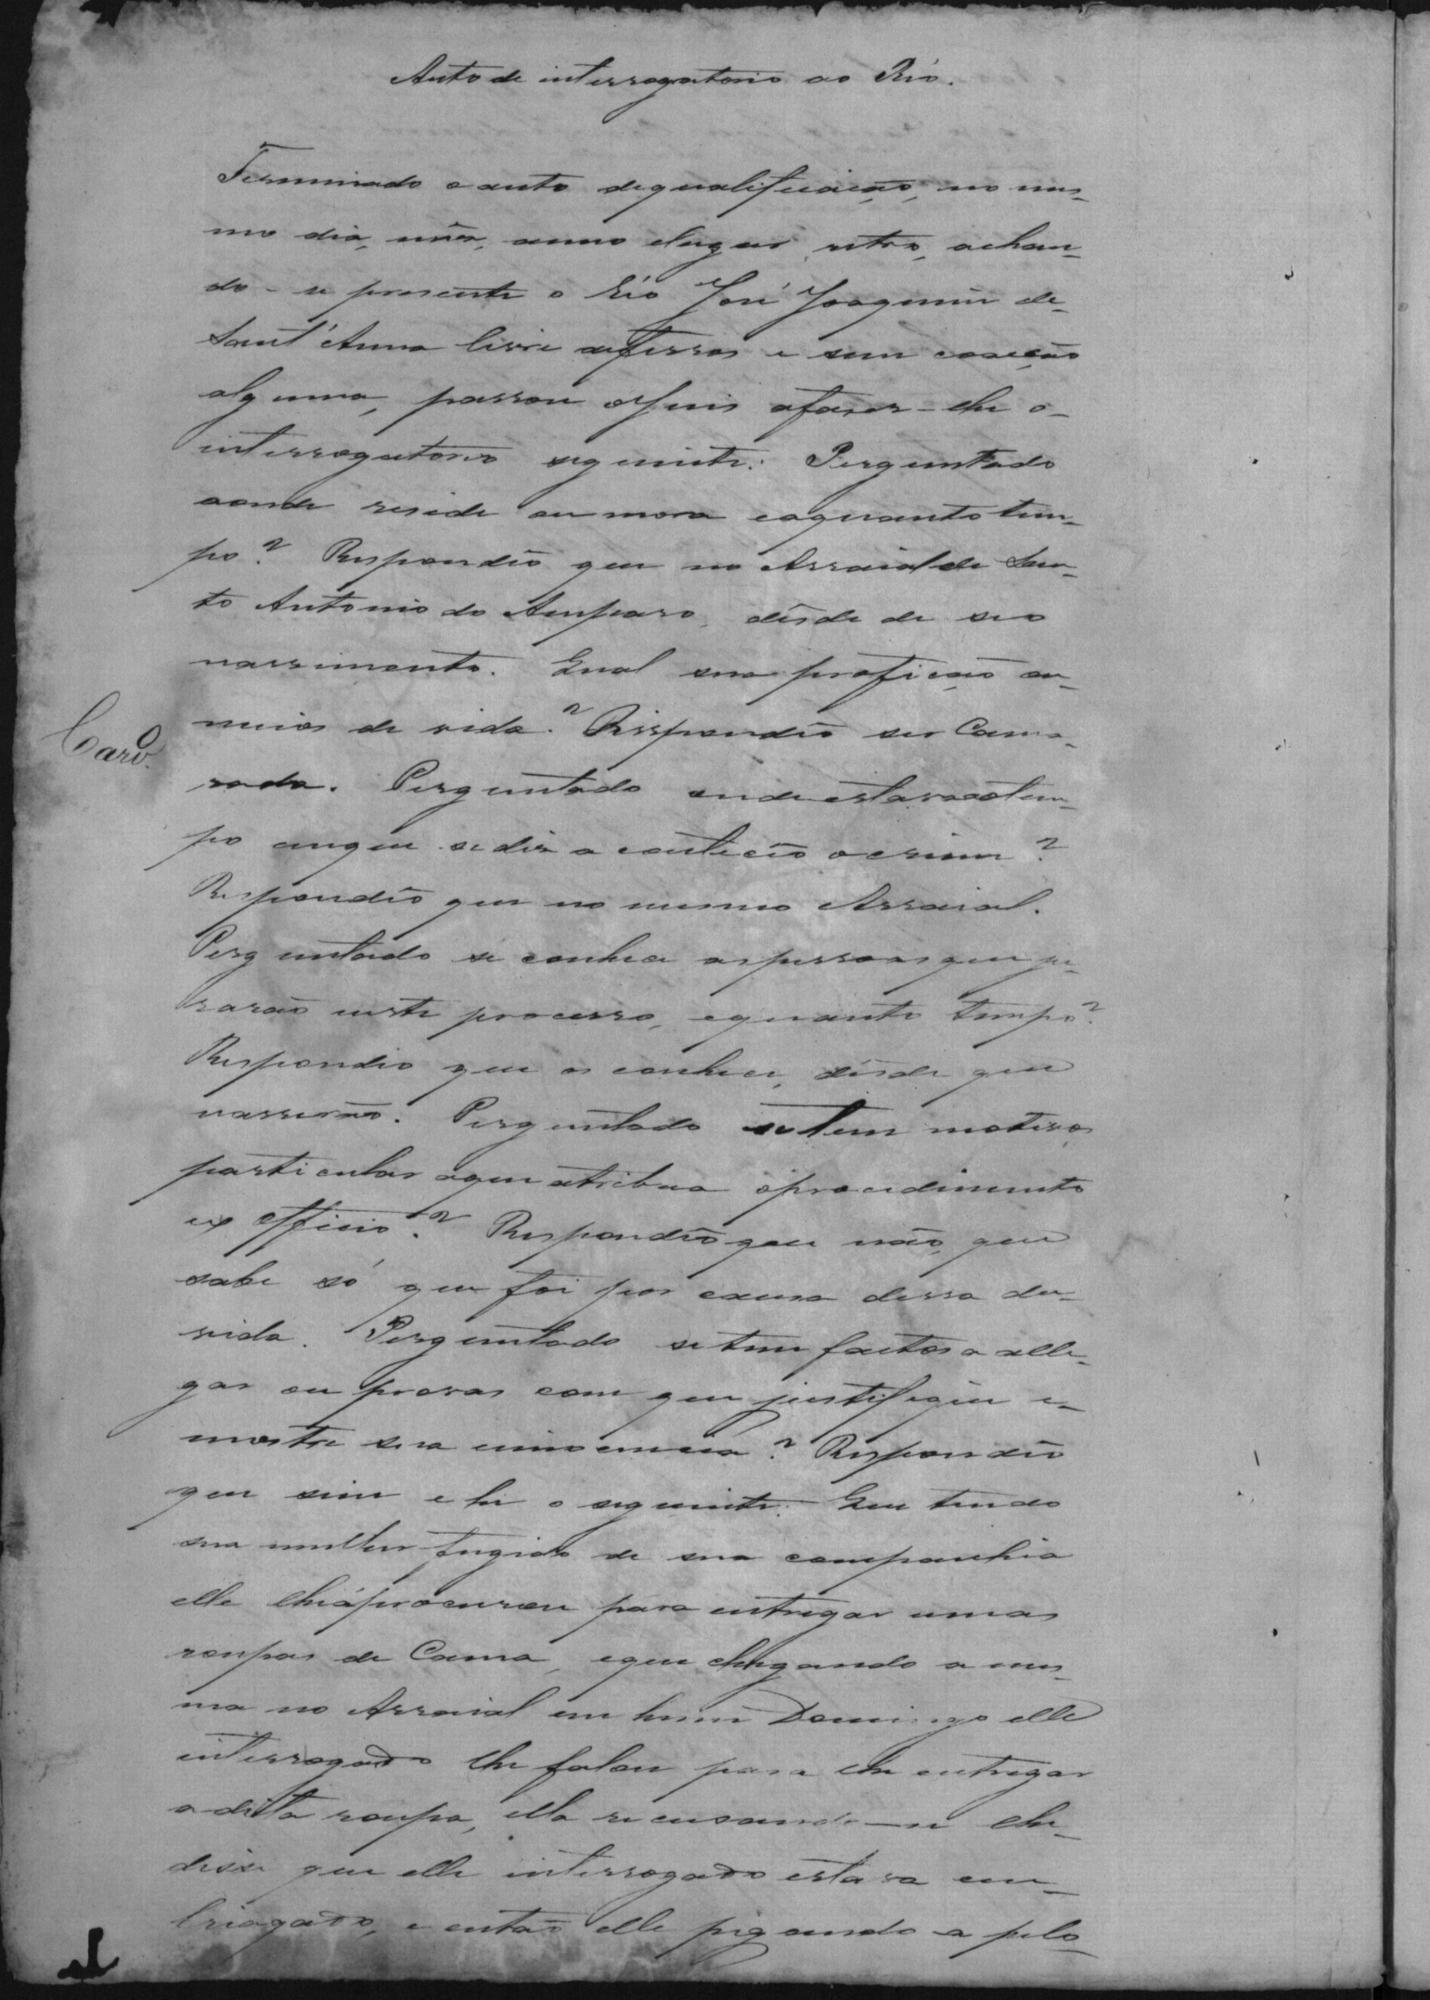 Auto de interrogatorio ao Réo.
Terminado o auto de qualificação, no mes-
mo dia, mês, anno elugar retro, achan-
do-se presente o Réo José Joaquim de
Sant'Anna livre de ferros e sem coacção
alguma, passou o Juis afaser-lhe o
interrogatorio seguinte: Perguntado
aonde reside ou mora eaquanto tem-
po? Respondêo que no Arraial de San-
to Antonio do Amparo, dêsde de seo
nassimento. Qual sua profição ou
meios de vida? Respondêo ser Cama-
rada. Perguntado onde estava aotem-
po emque se diz a conteceo o crime?
Respondêo que no mesmo Arraial.
Perguntado se conhece as pessoas que ju-
Caro.
rarão neste processo, equanto tempo?
Respondeo que as conhece, dêsde que
nasserão. Perguntado se tem motivos
particular aque atribua o procedimento
ex officio? Respondêo que não, que
sabe só que foi por causa dessa du-
vida. Perguntado se tem factos a alle-
gar ou provas com que justifique e-
mostre sua innocencia? Respondêo
que sim e he o seguinte: Que tendo
sua mulher fugido de sua companhia
elle lhe a procurou para entregar umas
roupas de Cama, e que chegando a mes-
ma no Arraial em hum Domingo elle
interrogado lhe falou para lhe entregar
a dita roupa, ella recusando-se lhe-
disse que elle interrogado estava em-
briagado, e então elle pegando-a pelo-